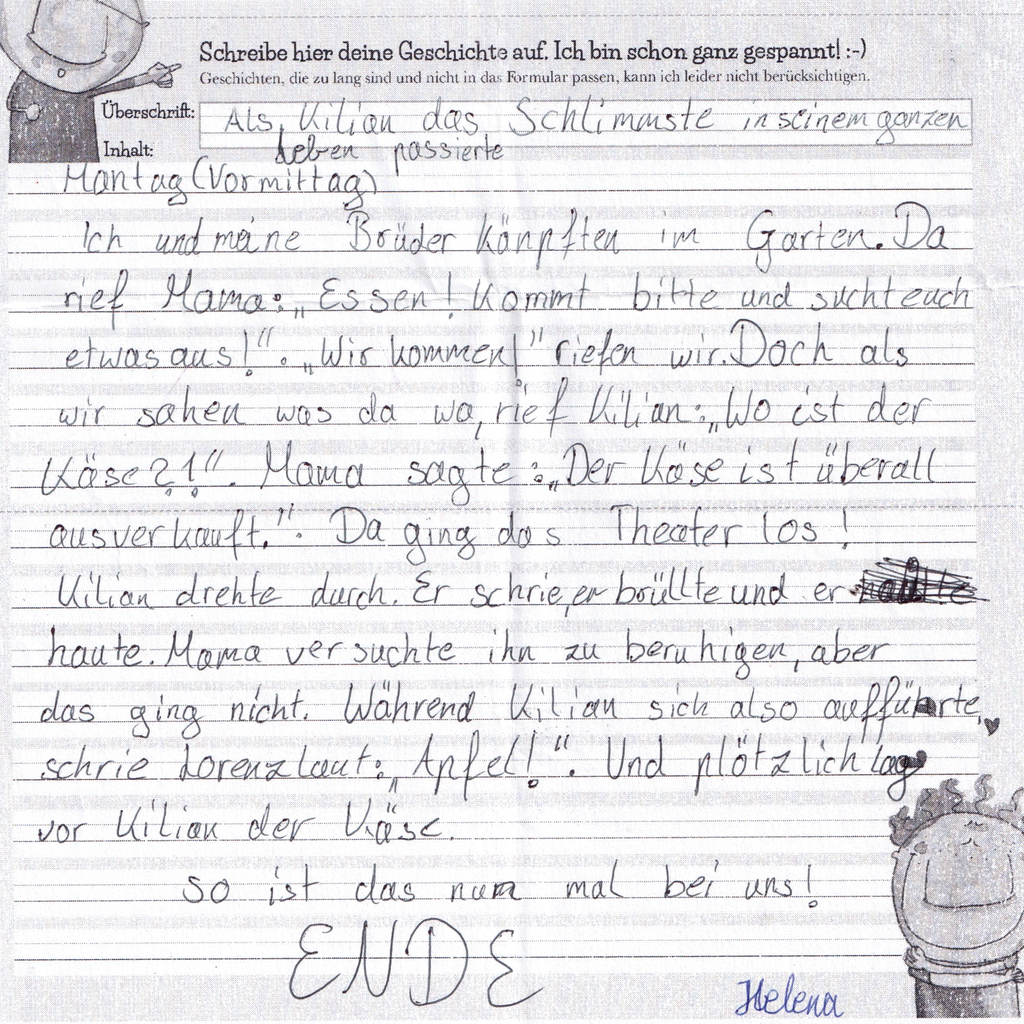 Schreibe hier deine Geschichte auf. Ich bin schon ganz gespannt! :-)
Geschichten, die zu lang sind und nicht in das Formular passen, kann ich leider nicht berücksichtigen.
Überschrift: Als Kilian das Schlimmste in seinem ganzen
Inhalt: Leben passierte
Montag (Vormittag)
Ich und meine Brüder kämpften im Garten. Da
rief Mama: „Essen! Kommt bitte und sucht euch
etwas aus!“. „Wir kommen!“ riefen wir. Doch als
wir sahen was da wa, rief Kilian: „Wo ist der
Käse?!“. Mama sagte: „Der Käse ist überall
ausverkauft.“. Da ging das Theater los!
Kilian drehte durch. Er schrie, er brüllte und er
haute. Mama versuchte ihn zu beruhigen, aber
das ging nicht. Während Kilian sich also aufführte,
schrie Lorenz laut: „Apfel!“. Und plötzlich lag
vor Kilian der Käse.
So ist das nun mal bei uns!
ENDE
Helena